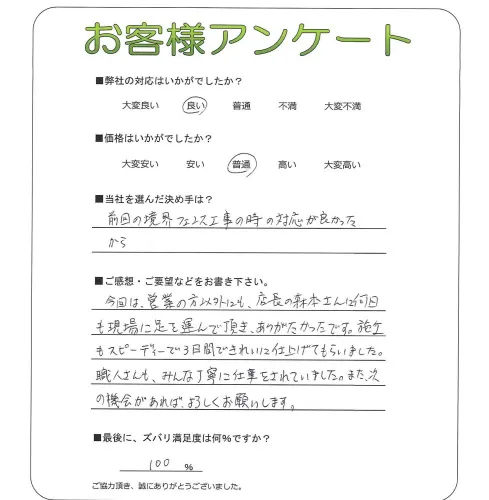 お客様アンケート
■弊社の対応はいかがでしたか?
大変良い 良い 普通 不満 大変不満
■価格はいかがでしたか?
大変安い 安い 普通 高い 大変高い
■当社を選んだ決め手は?
前回の境界フェンス工事の時の対応が良かった
から
■ご感想・ご要望などをお書き下さい。
今回は、営業の方以外にも、店長の森本さんに何日
も現場に足を運んで頂き、ありがたかったです。施工
もスピーディーで3日間できれいに仕上げてもらいました。
職人さんも、みんな丁寧に仕事をされていました。また、次
の機会があれば、よろしくお願いします。
■最後に、ズバリ満足度は何%ですか?
100 %
ご協力頂き、誠にありがとうございました。